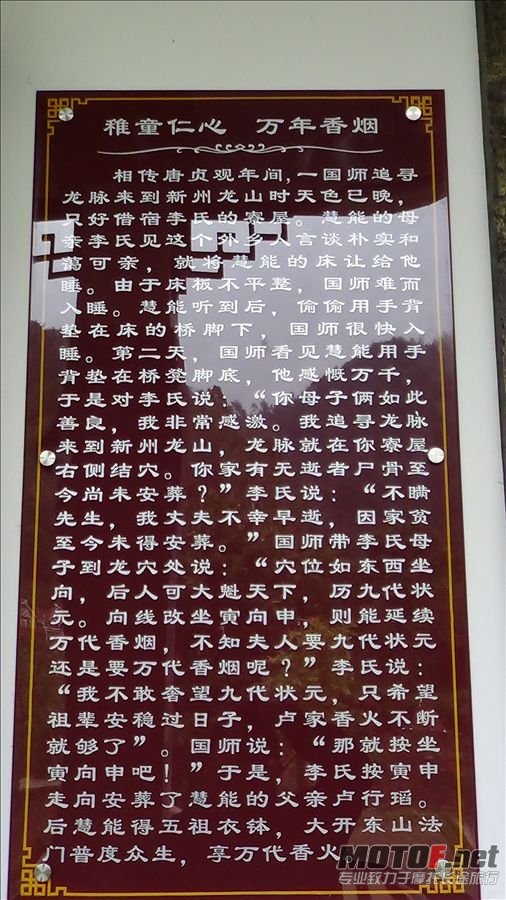 稚童仁心 万年香烟
相传唐贞观年间,一国师追寻
龙脉来到新州龙山时天色已晚,
只好借宿李氏的寮屋。慧能的母
亲李氏见这个外乡人言谈朴实和
蔼可亲,就将慧能的床让给他
睡。由于床板不平整,国师难而
入睡。慧能听到后,偷偷用手背
垫在床的桥脚下,国师很快入
睡。第二天,国师看见慧能用手
背垫在桥凳脚底,他感慨万千,
于是对李氏说:“你母子俩如此
善良,我非常感激。我追寻龙脉
来到新州龙山,龙脉就在你寮屋
右侧结穴。你家有无逝者尸骨至
今尚未安葬?”李氏说:“不瞒
先生,我丈夫不幸早逝,因家贫
至今未得安葬。”国师带李氏母
子到龙穴处说:“穴位如东西坐
向,后人可大魁天下,历九代状
元。向线改坐寅向申,则能延续
万代香烟,不知夫人要九代状元
还是要万代香烟呢?”李氏说:
“我不敢奢望九代状元,只希望
祖辈安稳过日子,卢家香火不断
就够了”。国师说:“那就按坐
寅向申吧!”于是,李氏按寅申
走向安葬了慧能的父亲卢行瑫。
后慧能得五祖衣钵,大开东山法
门普度众生,享万代香火。
MOTOF.net
专业致力于摩托长途旅行